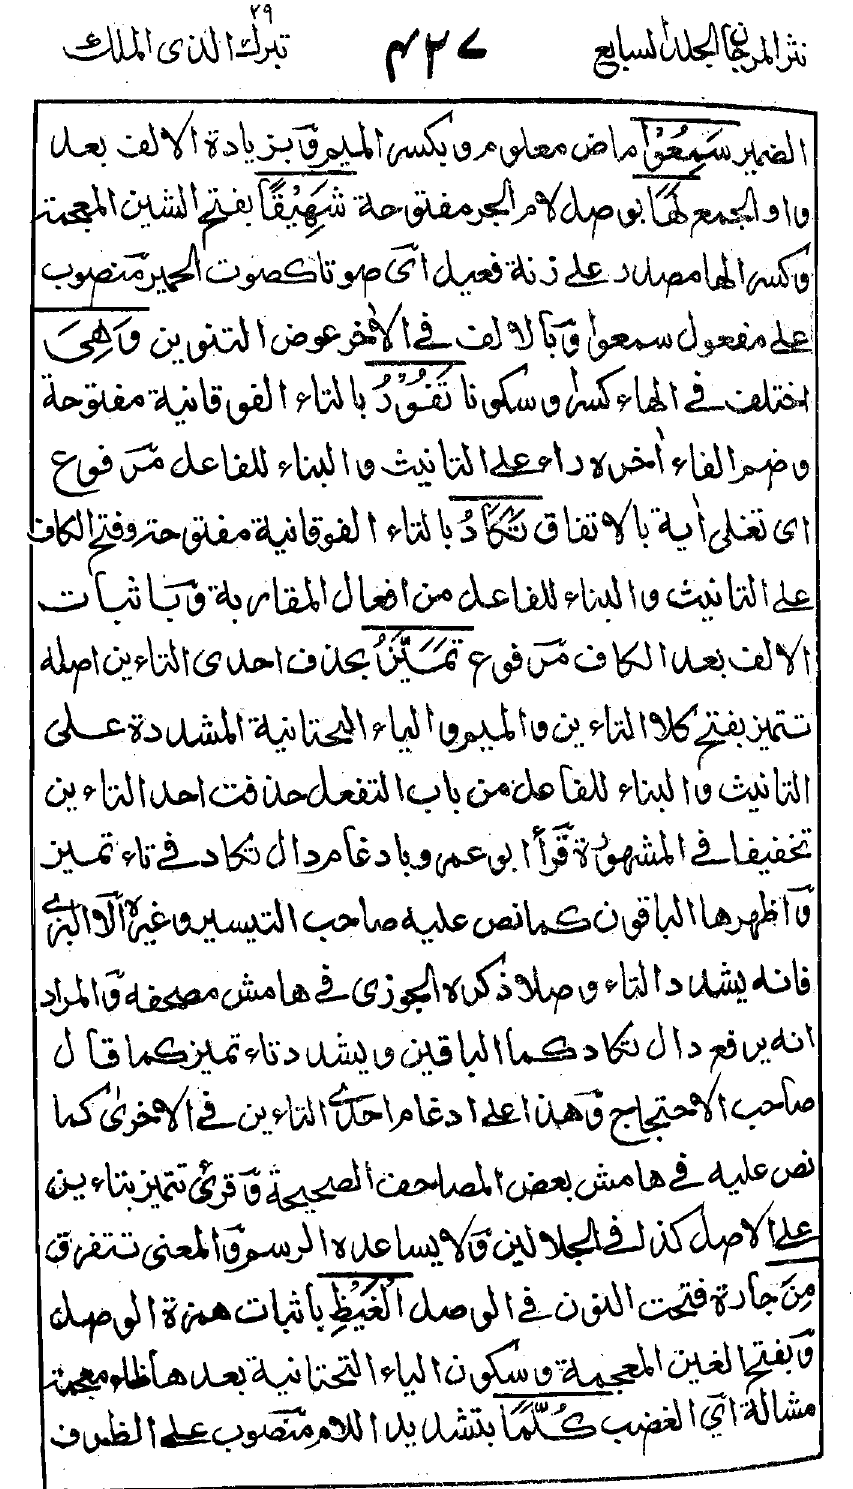 نثر المرجان الجلد السابع ٤٢٧ تبرك الذى الملك ٢٩
الضمير سَمِعُوْا ماض معلوم وبكسر الميم وَبزيادة الالف بعد
واو الجمع لَهَا بوصل لام الجر مفتوحة شَهِيْقًا بفتح الشين المعجمة
وكسر الها مصدر على زنة فعيل اىْ صوتا كصوت الحمير منصوب
على مفعول سمعوا وَبالالف فى الاٰخر عوض التنوين وَهِىَ
اختلف فى الهاء كسرا وسكونا تَفُوْرُ بالتاء الفوقانية مفتوحة
وضم الفاء اٰخره راء على التانيث والبناء للفاعل مرفوع
اى تغلى اٰية بالاتفاق تَكَادُ بالتاء الفوقانية مفتوحة وفتح الكاف
على التانيث والبناء للفاعل من افعال المقاربة وَباثبات
الالف بعد الكاف مرفوع تَمَيَّزُ بحذف احدى التاءين اصله
تتميز بفتح كلا التاءين والميم والياء التحتانية المشددة على
التانيث والبناء للفاعل من باب التفعل حذفت احد التاءين
تخفيفا فى المشهورة قرأ ابو عمرو بادغام دال تكاد فى تاء تميز
وَاظهرها الباقون كما نص عليه صاحب التيسير وغيره الّا البزى
فانه يشدد التاء وصلا ذكره الجوزى فى هامش مصحفه وَالمراد
انه يرفع دال تكاد كما الباقين ويشدد تاء تميز كما قال
صاحب الاحتجاج وَهذا على ادغام احدى التاءين فى الاخرىٰ كما
نص عليه فى هامش بعض المصاحف الصحيحة وَقرئ تتميز بتاءين
على الاصل كذا فى الجلالين وَلا يساعده الرسم وَالمعنى تتفرق
مِنَ جارة فتحت النون فى الوصل الْغَيْظِ باثبات همزة الوصل
وَبفتح الغين المعجمة وسكون الياء التحتانية بعدها ظاء معجمة
مشالة اىْ الغضب كُلَّمَا بتشديد اللام منصوب على الظرف